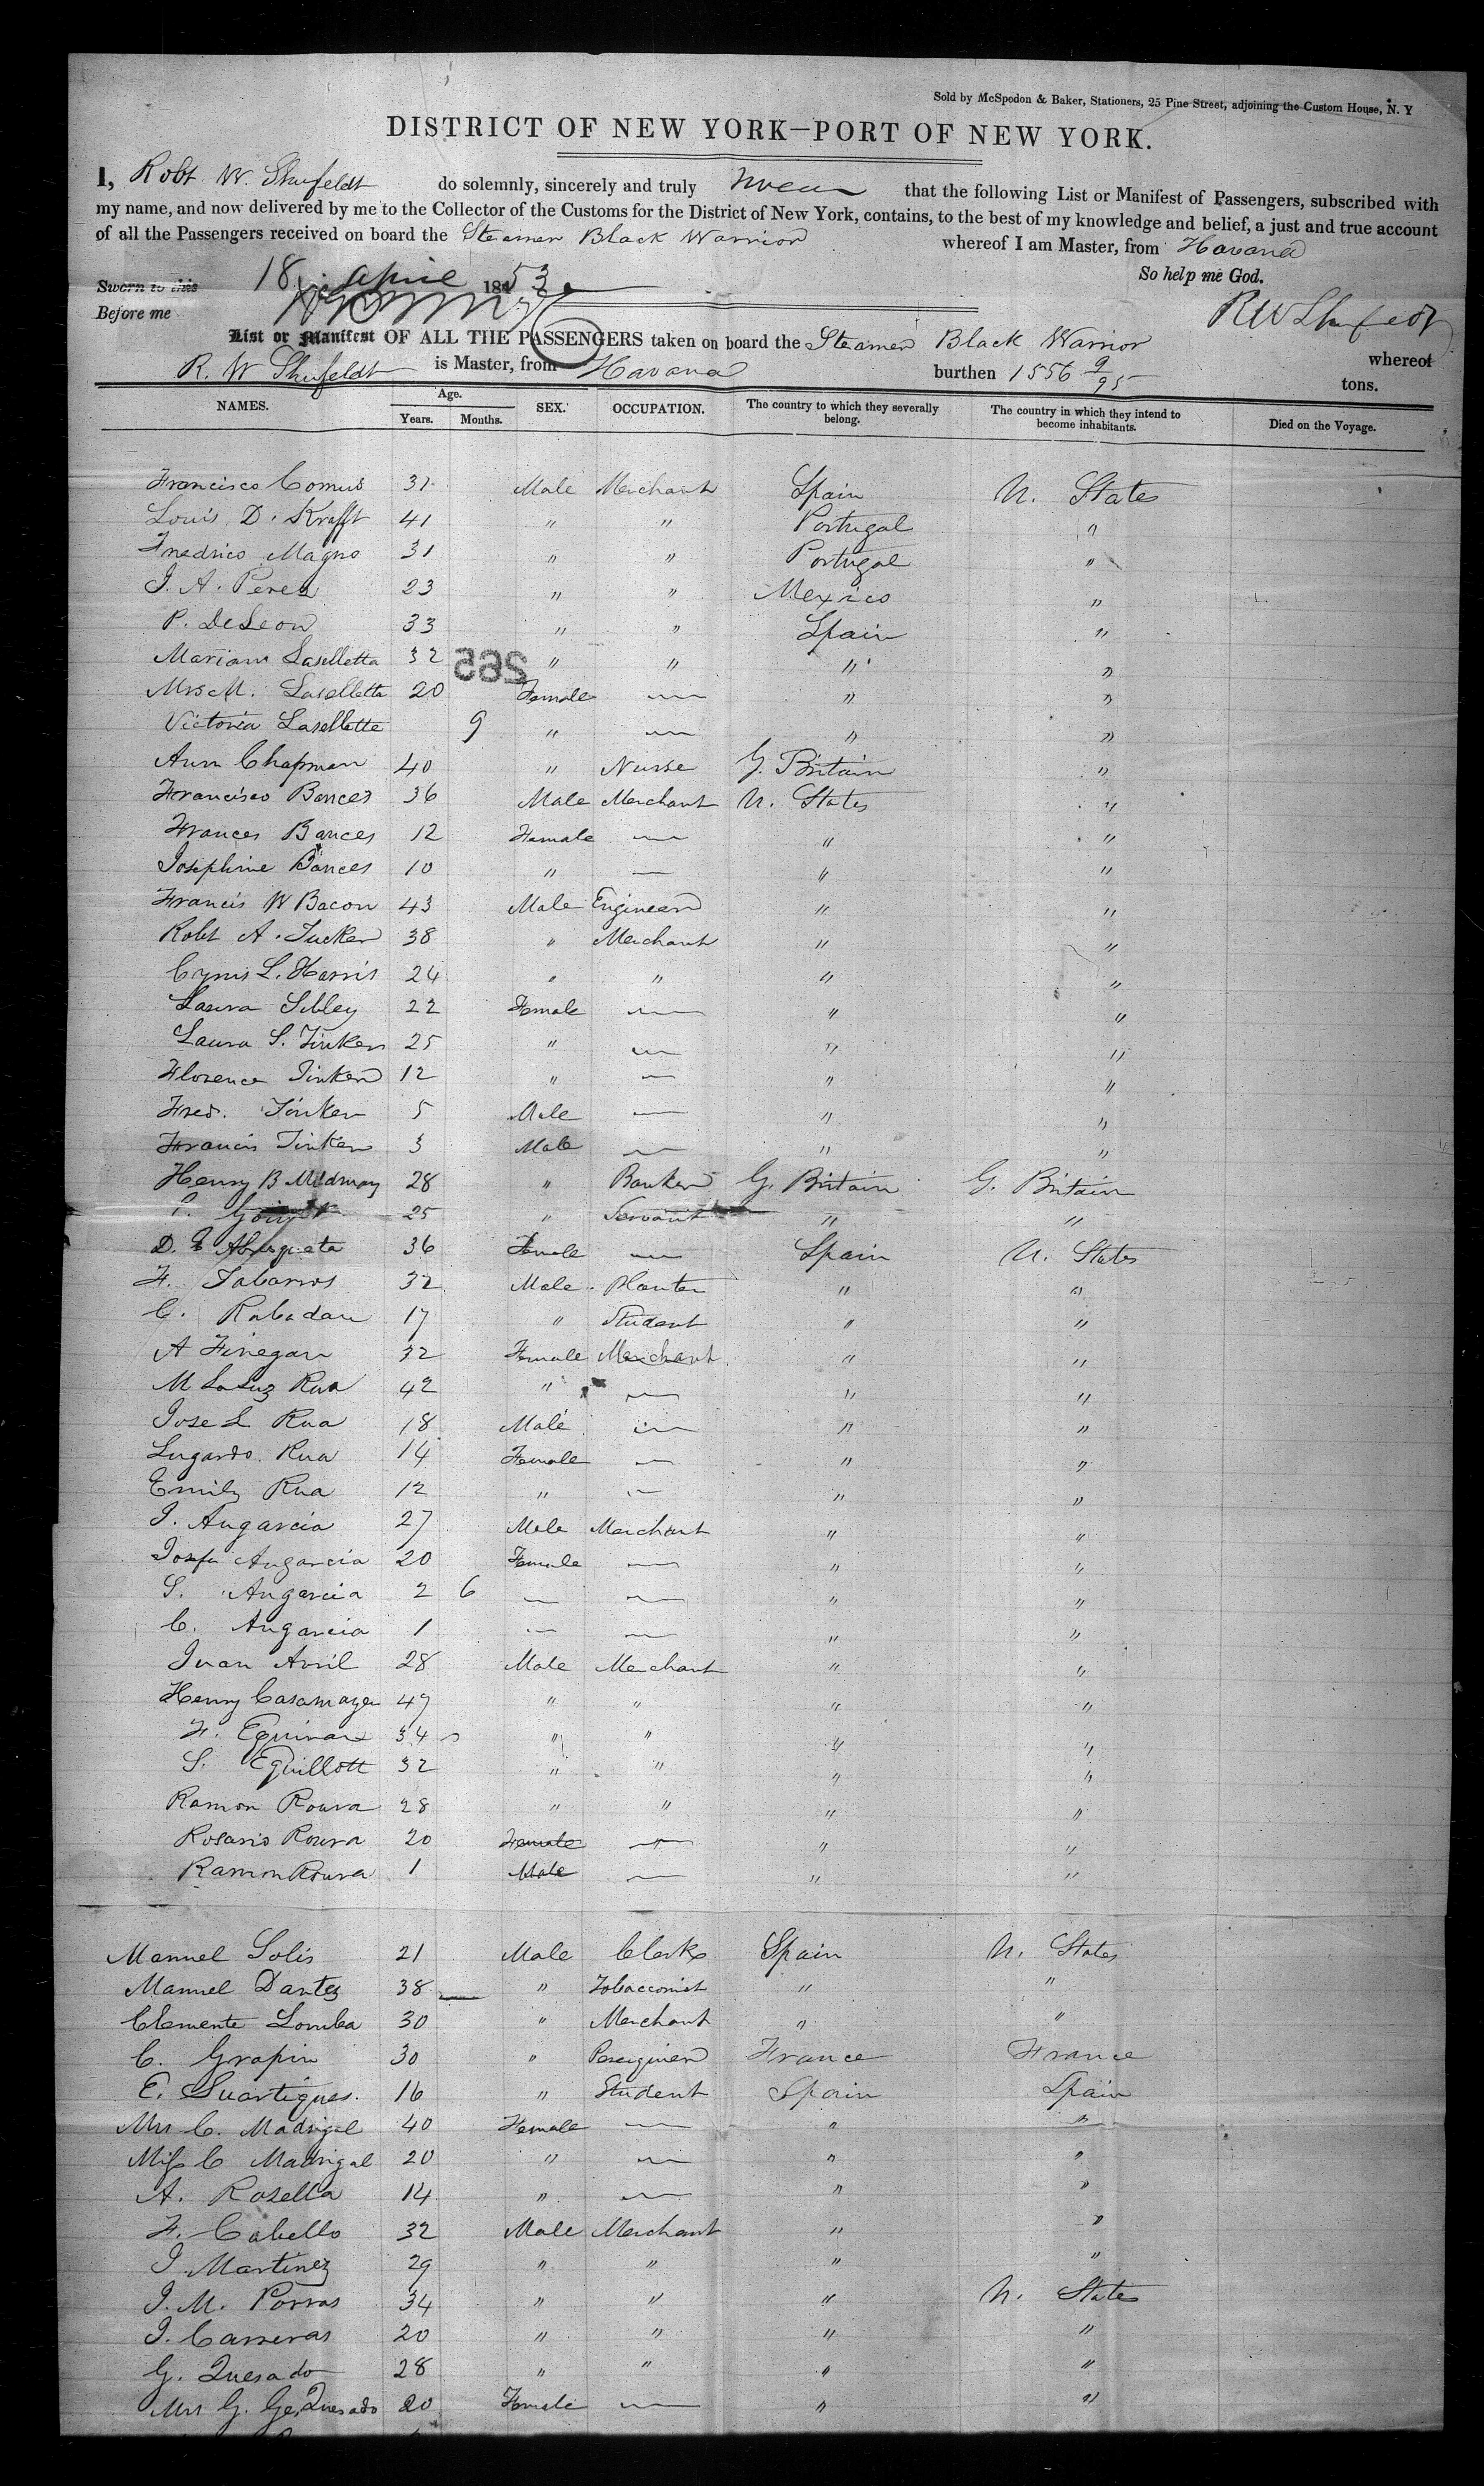 Sold by McSpedon & Baker, Stationers, 25 Pine Street, adjoining the Custom House, N. Y
DISTRICT OF NEW YORK—PORT OF NEW YORK.
I, Robt W. Shufeldt do solemnly, sincerely and truly swear that the following List or Manifest of Passengers, subscribed with
my name, and now delivered by me to the Collector of the Customs for the District of New York, contains, to the best of my knowledge and belief, a just and true account
of all the Passengers received on board the Steamer Black Warrior whereof I am Master, from Havana
So help me God.
Sworn to this 18 April 1853
Before me
R W Shufeldt
List or Manifest OF ALL THE PASSENGERS taken on board the Steamer Black Warrior whereof
R. W Shufeldt is Master, from Havana burthen 1556 9/95 tons.
NAMES. Age. Years. Months. SEX. OCCUPATION. The country to which they severally belong. The country in which they intend to become inhabitants. Died on the Voyage.
Francisco Comus 31 Male Merchant Spain U. States
Louis D. Krafft 41 " " Portugal "
Fredrico Magno 31 " " Portugal "
J. A. Perez 23 " " Mexico "
P. DeLeon 33 " " Spain "
Mariano Laselletta 32 " " " "
285
Mrs M. Laselletta 20 Female — " "
Victoria Lasellette 9 " — " "
Ann Chapman 40 " Nurse G. Britain "
Francisco Bances 36 Male Merchant U. States "
Frances Bances 12 Female — " "
Josephine Bances 10 " — " "
Francis W Bacon 43 Male Engineer " "
Robt A. Tucker 38 " Merchant " "
Cyrus L. Harris 24 " " " "
Laura Sibley 22 Female — " "
Laura S. Tinker 25 " — " "
Florence Tinker 12 " — " "
Fred. Tinker 5 Male — " "
Francis Tinker 3 Male — " "
Henry B Mildmay 28 " Banker G. Britain G. Britain
25 " Servant " "
D. 36 Female — Spain U. States
F. 32 Male Planter " "
C. Rabadan 17 " Student " "
A Finegan 32 Female Merchant " "
M LaLuz Rua 42 " — " "
Jose L Rua 18 Male — " "
Lugardo Rua 14 Female — " "
Emily Rua 12 " — " "
J. Angarcia 27 Male Merchant " "
Josefa Angarcia 20 Female — " "
S. Angarcia 2 6 — — " "
C. Angarcia 1 — — " "
Juan Avril 28 Male Merchant " "
Henry Casamayer 49 " " " "
F. 34 " " " "
S. Eguillott 32 " " " "
Ramon Roura 28 " " " "
Rosario Roura 20 Female — " "
Ramon Roura 1 Male — " "
Manuel Solis 21 Male Clerk Spain U. States
Manuel Dantes 38 — " Tobacconist " "
Clemente Lomba 30 " Merchant " "
C. Grapin 30 " France France
E. Suartigues. 16 " Student Spain Spain
Mrs C. Madrigal 40 Female — " "
Miss C Madrigal 20 " — " "
A. Rosella 14 " — " "
F. Cabello 32 Male Merchant " "
J. Martinez 29 " " " "
J. M. Porras 34 " " " U. States
J. Carreras 20 " " " "
G. Quesado 28 " " " "
Mrs G. Ge. Quesado 20 Female — " "